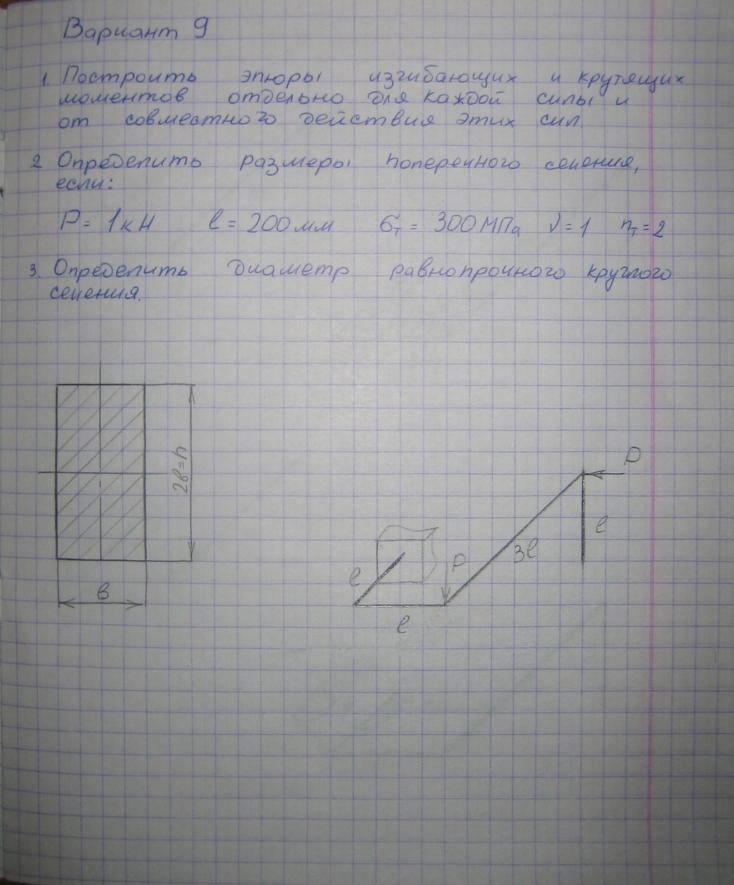 Вариант 9
1. Построить эпюры изгибающих и крутящих
моментов отдельно для каждой силы и
от совместного действия этих сил.
2 Определить размеры поперечного сечения,
если:
P = 1кН ℓ = 200мм σт = 300МПа ν = 1 nт = 2
3. Определить диаметр равнопрочного круглого
сечения.
2в=h
в
P
ℓ
3ℓ
P
ℓ
ℓ